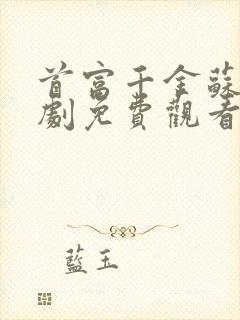 首富千金蘇
劇免費觀看
藍玉